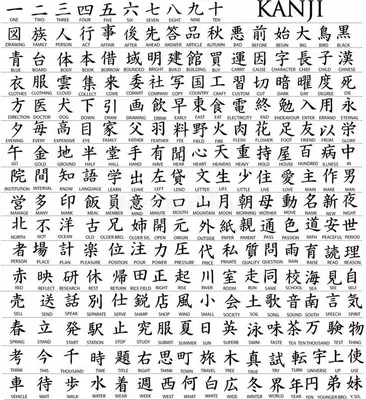 一 二 三 四 五 六 七 八 九 十 KANJI
ONE TWO THREE FOUR FIVE SIX SEVEN EIGHT NINE TEN
図 族 人 行 事 後 先 答 品 秋 悪 前 始 大 鳥 黒
DRAWING FAMILY PERSON ACT AFFAIR AFTER AHEAD ANSWER ARTICLE AUTUMN BAD BEFORE BEGIN BIG BIRD BLACK
青 台 体 本 借 域 明 建 館 買 運 因 字 長 子 漢
BLUE BOARD BODY BOOK BORROW BRIGHT BUILD BUILDING BUY CARRY CAUSE CHARACTER CHIEF CHILD CHINESE
衣 服 雲 集 来 委 社 写 国 工 習 切 暗 曜 度 死
CLOTHES CLOTHING CLOUD COLLECT COME COMMIT COMPANY COPY COUNTRY CRAFT CUT DARK DEATH
方 医 犬 下 引 画 飲 早 東 食 電 終 勉 入 用 永
DIRECTION DOCTOR DOG DOWN DRAW DRAWING DRINK EARLY EAST EAT ELECTRICITY END ENDEAVOUR ENTER ERRAND ETERNAL
夕 毎 高 目 家 父 羽 料 野 火 肉 花 足 友 以 栄
EVENING EVERY EXPENSIVE EYE FAMILY FATHER FEATHER FEE FIELD FIRE FLESH FLOWER FOOT FRIEND FROM GLORY
行 金 地 半 堂 手 有 聞 心 天 重 持 屋 百 病 中
GO GOLD GROUND HALF HALL HAND HAVE HEAR HEART HEAVENS HEAVY HOLD HOUSE HUNDRED ILLNESS IN
院 間 知 語 学 出 左 貸 文 生 少 住 愛 主 作 男
INSTITUTION INTERVAL KNOW LANGUAGE LEARN LEAVE LEFT LEND LETTER LIFE LITTLE LIVE LOVE MAIN MAKE MAN
営 多 印 飯 員 意 分 口 山 月 朝 母 動 名 新 夜
MANAGE MANY MARK MEAL MEMBER MIND MINUTE MOUTH MOUNTAIN MOON MORNING MOTHER MOVE NAME NEW NIGHT
北 不 洋 古 兄 姉 開 元 外 紙 親 通 色 道 安 世
NORTH NOT OCEAN OLD OLDER BRO. OLDER SIS. OPEN ORIGIN OUTSIDE PAPER PARENT PASS PASSION PATH PEACEFUL PERIOD
者 場 計 楽 位 注 力 圧 代 私 質 問 雨 育 読 理
PERSON PLACE PLAN PLEASURE POSITION POUR POWER PRESSURE PRICE PRIVATE QUALITY QUESTION RAIN RAISE READ REASON
赤 映 研 休 帰 田 正 起 川 室 走 同 校 海 見 自
RED REFLECT RESEARCH REST RETURN RICE FIELD RIGHT RISE RIVER ROOM RUN SAME SCHOOL SEA SEE SELF
売 送 話 別 仕 鋭 店 風 小 会 土 歌 音 南 言 気
SELL SEND SPEAK SEPARATE SERVE SHARP SHOP WIND SMALL SOCIETY SOIL SONG SOUND SOUTH SAY SPIRIT
春 立 発 駅 止 究 服 夏 日 英 泳 味 茶 万 験 物
SPRING STAND START STATION STOP STUDY SUBMIT SUMMER SUN SUPERB SWIM TASTE TEA TEN THOUSAND TEST THING
考 今 千 時 題 右 思 町 旅 木 真 試 転 宇 上 使
THINK THIS THOUSAND TIME TITLE RIGHT THINK TOWN TRAVEL TREE TRUE TRY TURN UNIVERSE UP USE
車 待 歩 水 着 週 西 何 白 広 冬 世 界 年 円 弟 妹
VEHICLE WAIT WALK WATER WEAR WEEK WEST WHAT WHITE WIDE WINTER WORLD YEAR YEN YOUNGER BRO. Y.SIS.